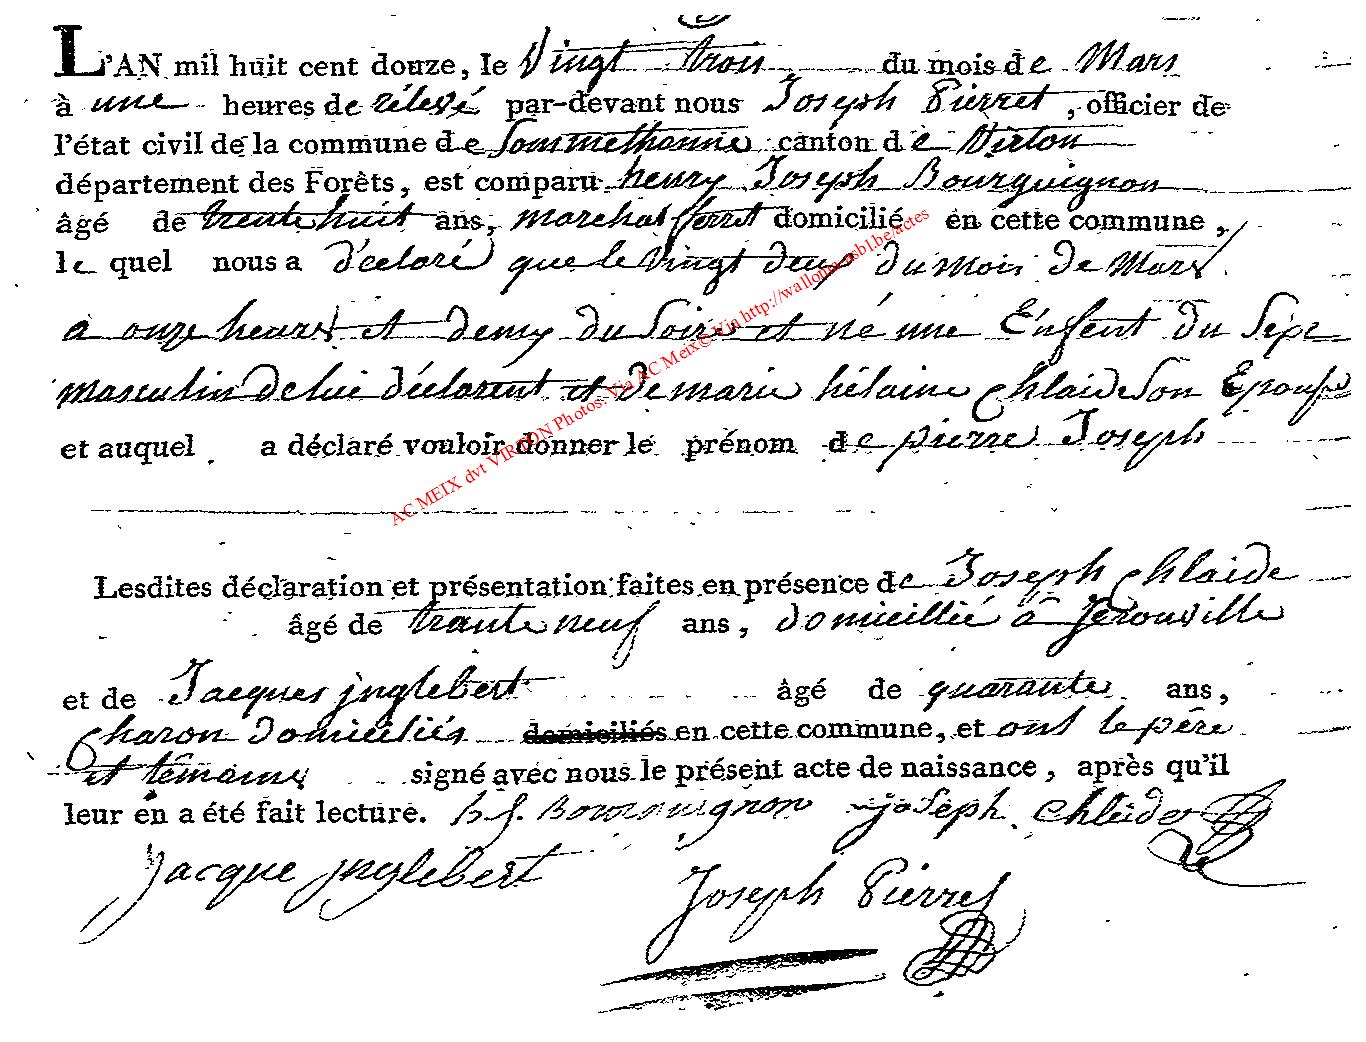 L'AN mil huit cent douze, le Vingt trois du mois de Mars
à une heures de rélevé par-devant nous Joseph Pierret, officier de
l'état civil de la commune de Sommethonne canton de Virton
département des Forêts, est comparu henry Joseph Bourguignon
âgé de trente huit ans, marchal ferret domicilié en cette commune,
le quel nous a déclaré que le vingt deux du mois de Mars
a onze heures et demy du Soire et né une Enfent du Sexe
masculin de lui déclarent et de marie hélaine Chlaide Son Epouse
et auquel a déclaré vouloir donner le prénom de pierre Joseph
AC MEIX dvt VIRTON Photos: Via AC Meix© Via http://wallonia-asbl.be/actes
Lesdites déclaration et présentation faites en présence de Joseph Chlaide
âgé de trante neuf ans, domicillié à Jerouville
et de Jacques jnglebert âgé de quarante ans,
Charon domiciliés domiciliés en cette commune, et ont le père
et têmoins signé avec nous le présent acte de naissance, après qu'il
leur en a été fait lecture. h J. Bourguignon joseph Chlaide
Jacque jnglebert Joseph Pierret